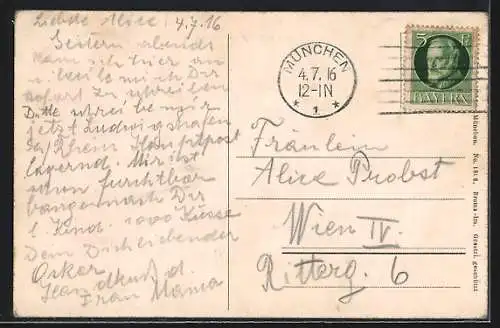 Liebste Alice! 4.7.16
Gestern abends
kam ich hier an
u. beeile mich Dir
sofort zu schreiben
Bitte schreibe mir
jetzt Ludwigshafen
a/Rhein Hauptpost
lagernd. Mir ist
schon furchtbar
bange nach Dir
l. Kind. 1000 Küsse
Dein Dich liebender
Oskar
Handkuß d.
Frau Mama
MÜNCHEN
4.7.16
12-1N
* 1. *
5 PF
BAYERN
Fräulein
Alice Probst
Wien IV.
Ritterg. 6
München. No.
Gesetzl. geschützt